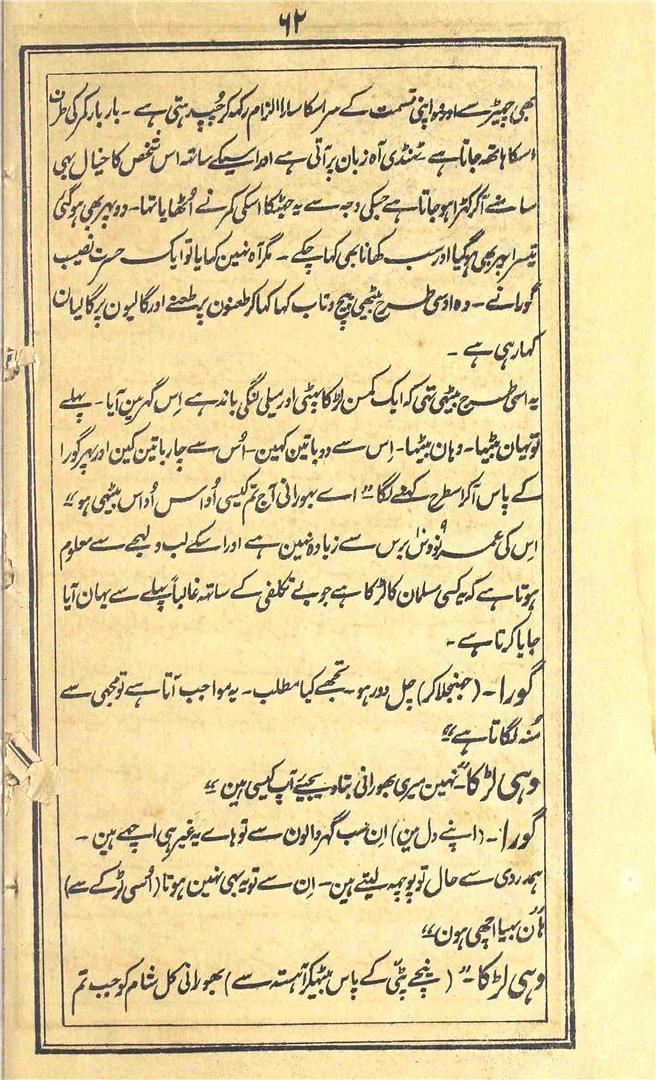 ۶۲
بھی چھیڑے اور وہ اپنی قسمت کے سر اسکا سارا الزام رکھہ کر چُپ رہتی ہے ۔ بار بار کمر کی طرف
اسکا ہاتھہ جاتا ہے ٹھنڈی آہ زبان پر آتی ہے اور اسیکے ساتہ اس شخص کا خیال بہی
سامنے آکر کھڑا ہو جاتا ہے جسکی وجہ سے یہ جھٹکا اسکی کمر نے اُٹھایا تہا۔ دوپہر بھی ہوگئی
تیسرا پہر بھی ہوگیا اور سب کھانا بھی کہا چکے ۔ مگر آہ نہین کہایا تو ایک حسرت نصیب
گورا نے ۔ وہ اوسی طرح بیٹھی پیچ و تاب کہا کہا کر طعنون پر طعنے اور گالیون پر گالیان
کہا رہی ہے ۔
یہ اسی طرح بیٹہی تہی کہ ایک کمسن لڑکا پہٹی اور میلی لنگی باندہے اِس گہر مین آیا ۔ پہلے
تو یہان بیٹہا ۔ وہان بیٹہا ۔ اِس سے دو باتین کہین ۔ اُس سے چار باتین کین اور پہر گورا
کے پاس آکر اسطرح کہنے لگا “ اے بہورانی آج تم کیسی اُداس اُداس بیٹھی ہو ”
اِس کی عمر نو دس برس سے زیادہ نہین ہے اور اسکے لب و لہجے سے معلوم
ہوتا ہے کہ یہ کسی مسلمان کا لڑکا ہے جو بے تکلفی کے ساتہہ غالباً پہلے سے یہان آیا
جایا کرتا ہے ۔
گورا ۔ (جہنجلا کر) چل دور ہو ۔ تجھے کیا مطلب ۔ یہ موا جب آتا ہے تو مجہی سے
مُنہ لگاتا ہے ”
وہی لڑکا ۔ “نہین میری بہورانی بتا دیجیے آپ کیسی ہین ”
گورا ۔ (اپنے دل مین) اِن سب گہر والون سے تو ہاے یہ غیر ہی اچھے ہین ۔
ہمدردی سے حال تو پوچہہ لیتے ہین ۔ اِن سے تو یہ بہی نہین ہوتا (اُسی لڑکے سے)
ہان بہیا اچھی ہون ”
وہی لڑکا ۔ “ ( نیچے پٹی کے پاس بیٹھکر آہستہ سے ) بہورانی کل شام کو جب تم